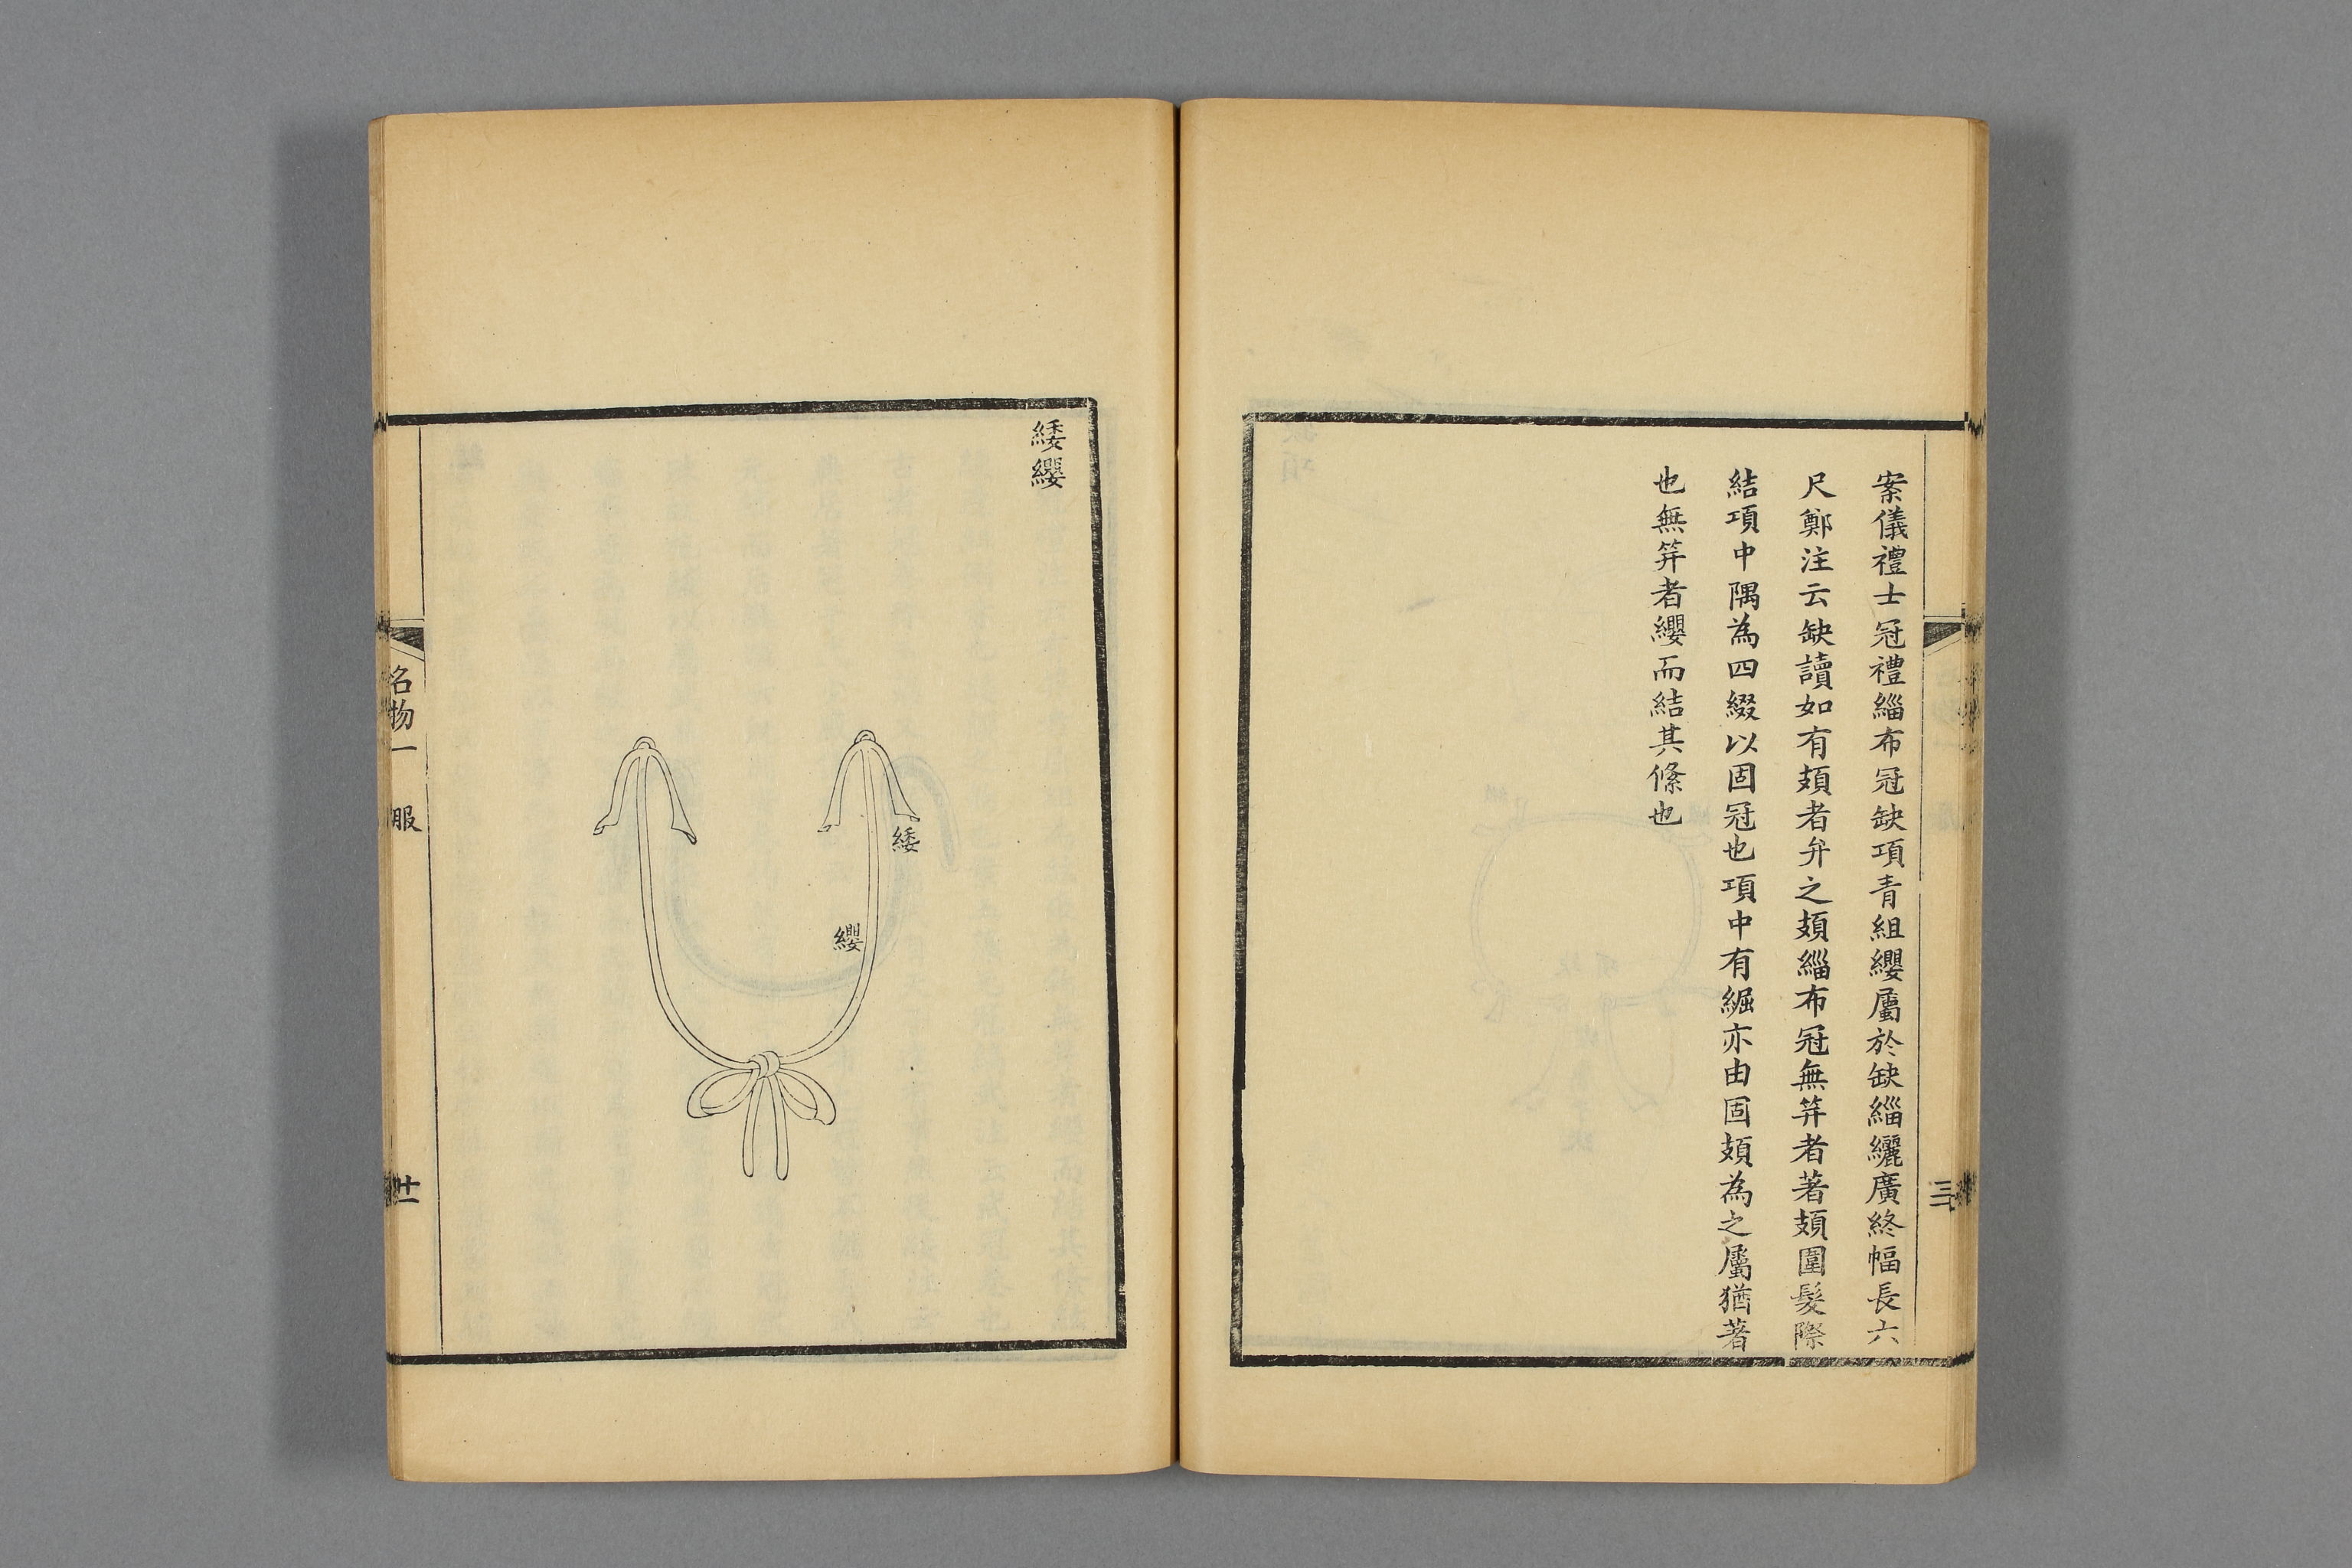 案儀禮士冠禮緇布冠缺項青組纓屬於缺緇纚廣終幅長六
尺鄭注云缺讀如有頍者弁之頍緇布冠無笄者著頍圍髮際
結項中隅為四綴以固冠也項中有䋿亦由固頍為之屬猶著
也無笄者纓而結其絛也
緌纓
緌
纓
名物一
服
廿一